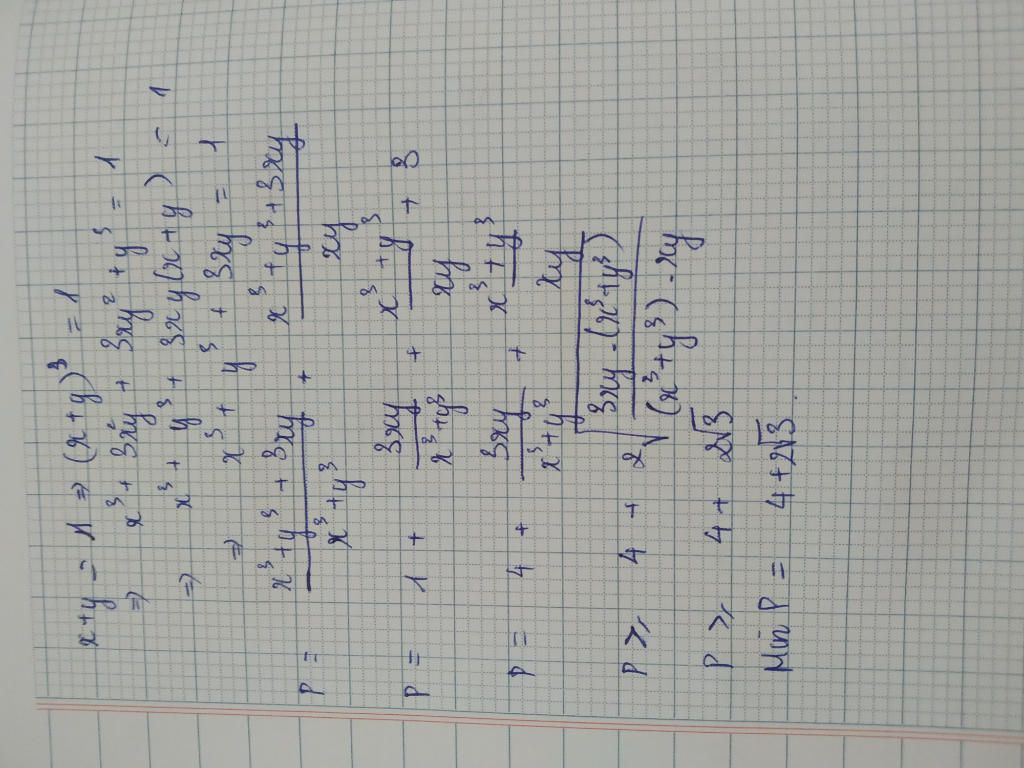 x+y = 1 ⇒ (x+y)³ = 1
⇒ x³ + 3xy² + 3xy² + y³ = 1
⇒ x³ + y³ + 3xy(x+y) = 1
⇒ x³ + y³ + 3xy = 1
P = (x³+y³+3xy)/(x³+y³) + (x³+y³+3xy)/(xy)
P = 1 + 3xy/(x³+y³) + (x³+y³)/(xy) + 3
P = 4 + 3xy/(x³+y³) + (x³+y³)/(xy)
P ≥ 4 + 2√((3xy.(x³+y³))/((x³+y³).xy))
P ≥ 4 + 2√3
Min P = 4+2√3.